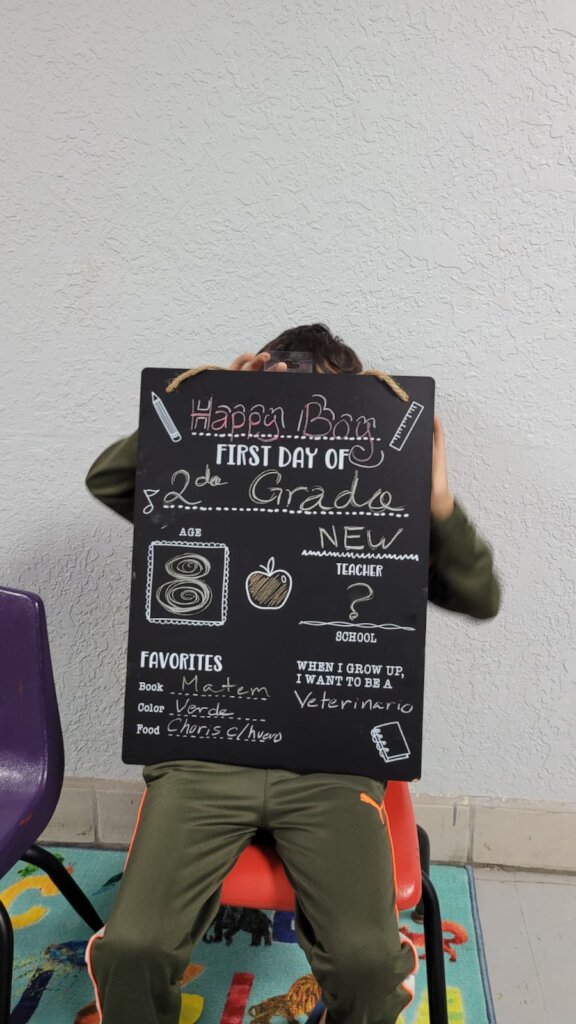 Happy Boy
FIRST DAY OF
2do Grado
AGE
8
NEW
TEACHER
?
SCHOOL
FAVORITES
Book Matem
Color Verde
Food Choris c/huevo
WHEN I GROW UP,
I WANT TO BE A
Veterinario